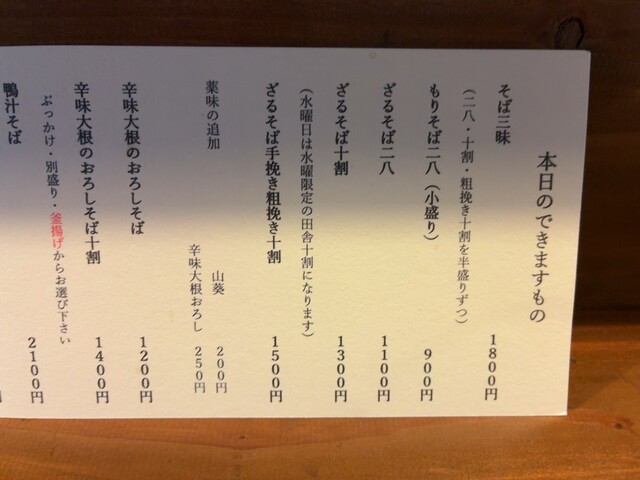 本日のできますもの
そば三昧 1800円
(二八・十割・粗挽き十割を半盛りずつ)
もりそば二八(小盛り) 900円
ざるそば二八 1100円
ざるそば十割 1300円
(水曜日は水曜限定の田舎十割になります)
ざるそば手挽き粗挽き十割 1500円
薬味の追加 山葵 200円
辛味大根おろし 250円
辛味大根のおろしそば 1200円
辛味大根のおろしそば十割 1400円
ぶっかけ・別盛り・釜揚げからお選び下さい
2100円
鴨汁そば